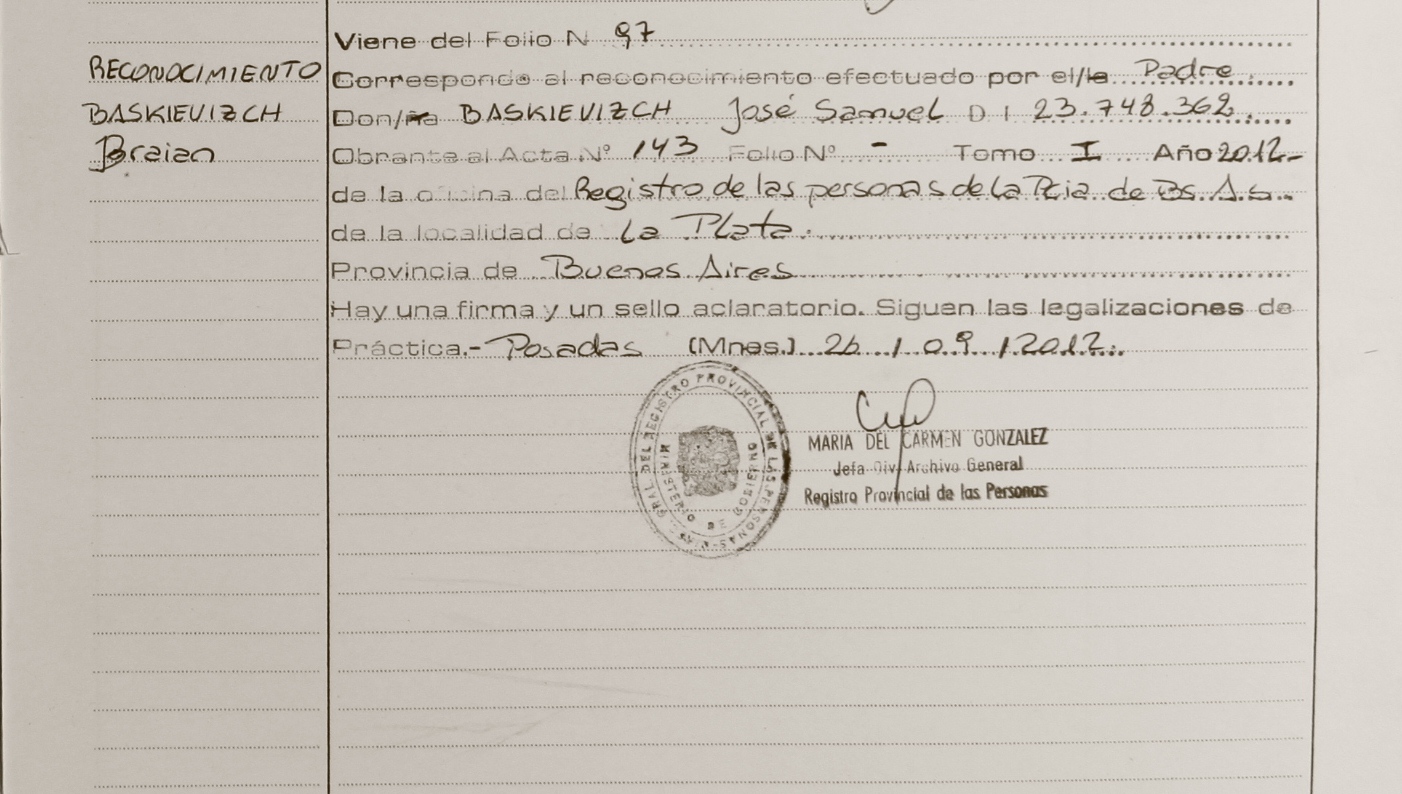 Viene del Folio N 97
RECONOCIMIENTO
BASKIEVIZCH
Braian
Corresponde al reconocimiento efectuado por el/la Padre
Don/ña BASKIEVIZCH José Samuel D I 23.748.362.
Obrante al Acta Nº 143 Folio Nº - Tomo I Año 2012-
de la oficina del Registro de las personas de la Pcia de Bs. As.
de la localidad de La Plata.
Provincia de Buenos Aires
Hay una firma y un sello aclaratorio. Siguen las legalizaciones de
Práctica.- Posadas (Mnes.) 26 / 09 / 2012.
GRAL. DEL REGISTRO PROVINCIAL DE LAS PERSONAS
MINISTERIO DE GOBIERNO
MARIA DEL CARMEN GONZALEZ
Jefa Div. Archivo General
Registro Provincial de las Personas